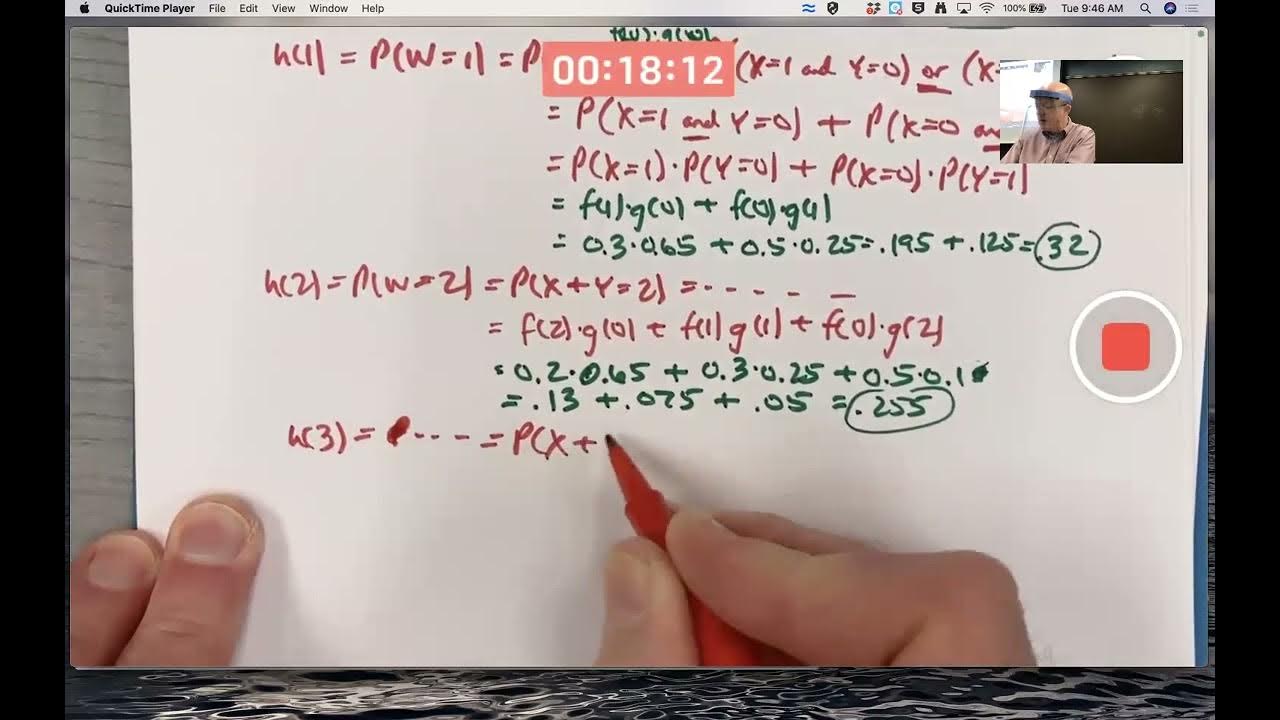 QuickTime Player File Edit View Window Help 100% Tue 9:46 AM
f(0)·g(0)
h(1) = P(W=1) = P
00:18:12
(X=1 and Y=0) or (X=
= P(X=1 and Y=0) + P(X=0 an
= P(X=1)·P(Y=0) + P(X=0)·P(Y=1)
= f(1)·g(0) + f(0)·g(1)
= 0.3·0.65 + 0.5·0.25 = .195 + .125 = .32
h(2) = P(W=2) = P(X+Y=2) = - - - - -
= f(2)·g(0) + f(1)g(1) + f(0)·g(2)
= 0.2·0.65 + 0.3·0.25 + 0.5·0.1
= .13 + .075 + .05 = .255
h(3) = - - - = P(X+